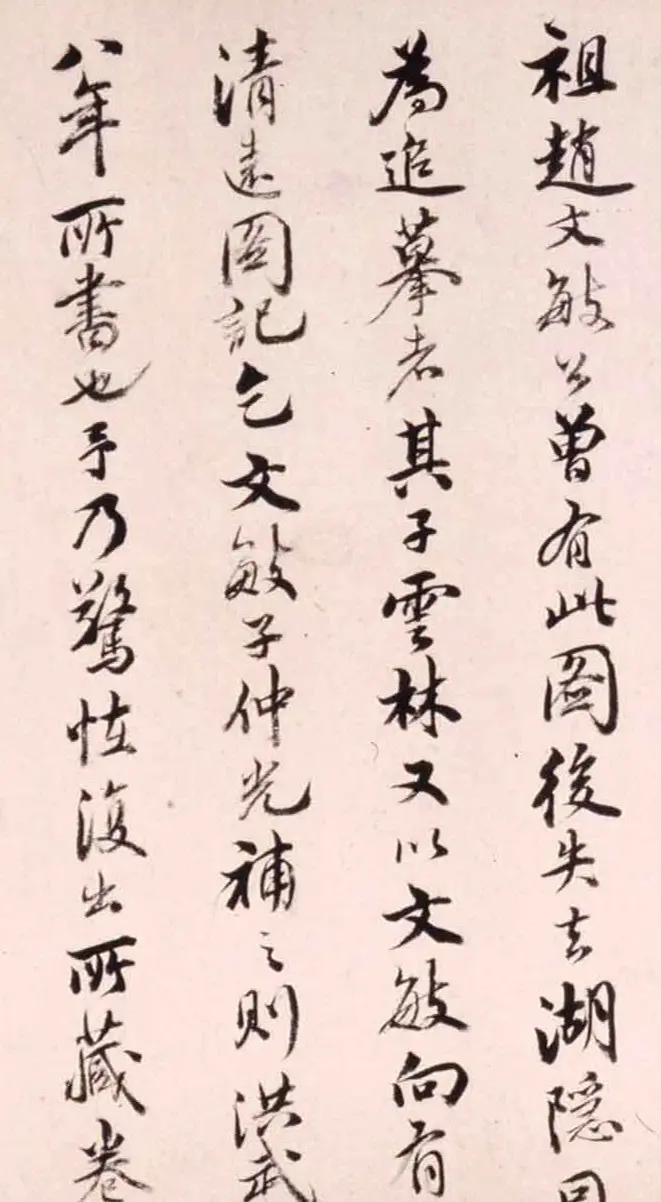 祖趙文敏公曾有此圖後失去湖隱
為追摹者其子雲林又以文敏向有
清遠圖記乞文敏子仲光補之則洪武
八年所書也予乃驚怪復出所藏卷